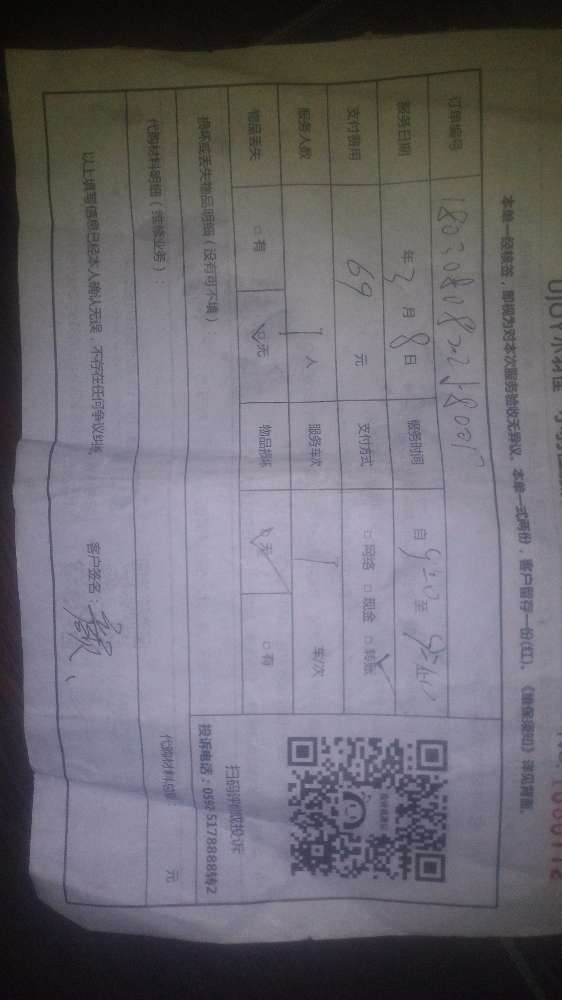 本单一经签签,即视为对本次服务验收无异议。本单一式两份,客户留存一份(红)。《维保须知》详见背面。
订单编号
服务日期 年 3 月 8 日 服务时间 自 9:20 至
支付费用 69 元 支付方式 □网络 □现金 □转账
服务人数 1 人 服务车次 1 车/次
物品丢失 □有 □无 物品损坏 □无 □有
损坏或丢失物品明细(没有可不填):
扫码评价投诉
投诉电话:0592 5178888转2
代购材料明细(维修业务):
代购材料总额: 元
以上填写信息已经本人确认无误,不存在任何争议纠纷。
客户签名: